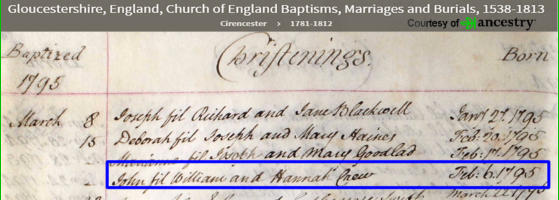 Gloucestershire, England, Church of England Baptisms, Marriages and Burials, 1538-1813
Cirencester > 1781-1812
Courtesy of ancestry
Baptized Christenings. Born
1795
March 8 Joseph fil Richard and Jane Blackwell Janry 27. 1795
15 Deborah fil Joseph and Mary Haines Feb: 20. 1795
fil Joseph and Mary Goodlad Feb: 1795
John fil William and Hannah Crew Feb: 6. 1795